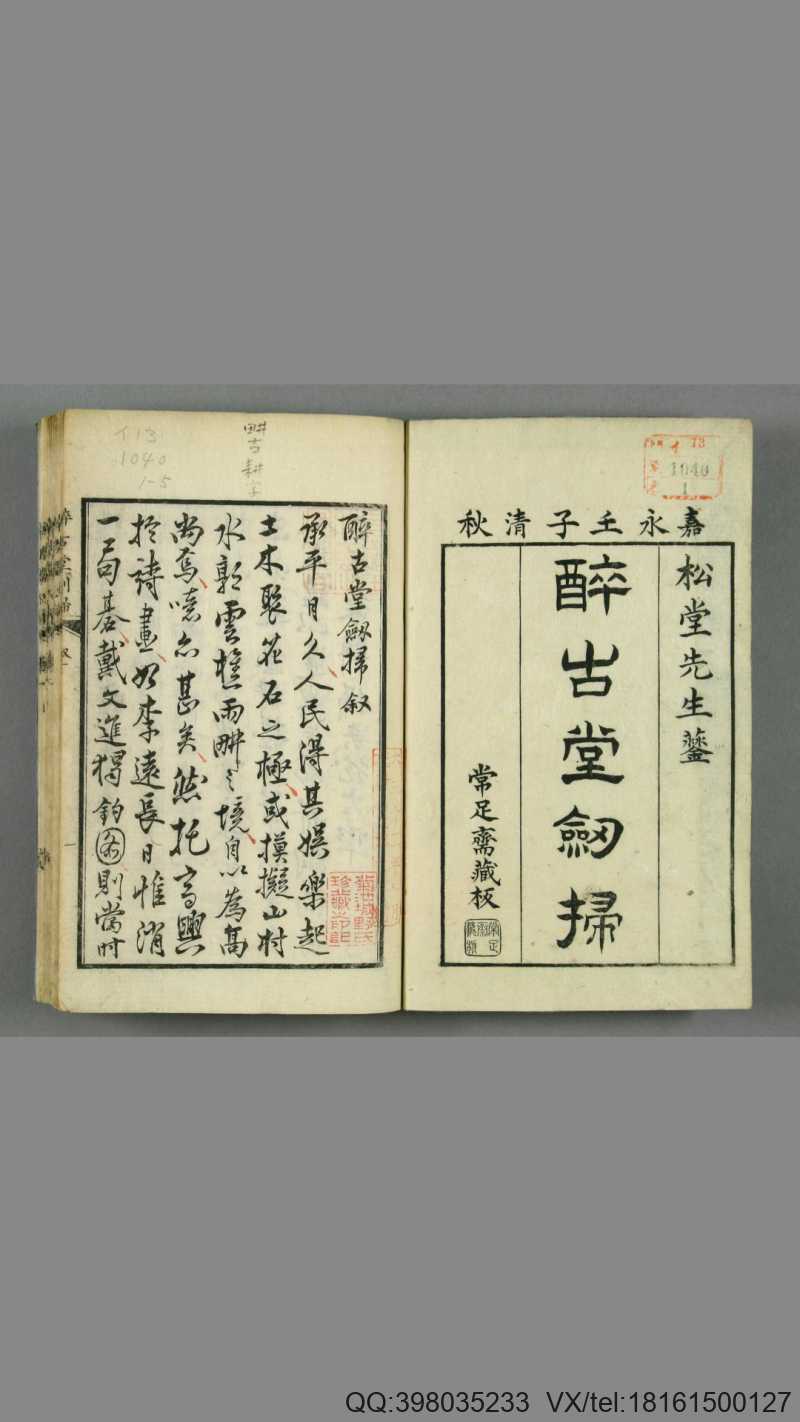 嘉永壬子清秋
松堂先生鑒
醉古堂劔掃
常足齋藏板
1040
1
醉古堂劔掃叙
承平日久人民得其娯樂起
土木聚花石之極或摸擬山村
水郭雲樵雨畊之境自以為高
尚焉噫亦甚矣然托高興
於詩畫如李遠長日惟消
一局碁戴文進獨釣圖則當时
畊古耕字
イ13
1040
1-5
QQ:398035233 VX/tel:18161500127